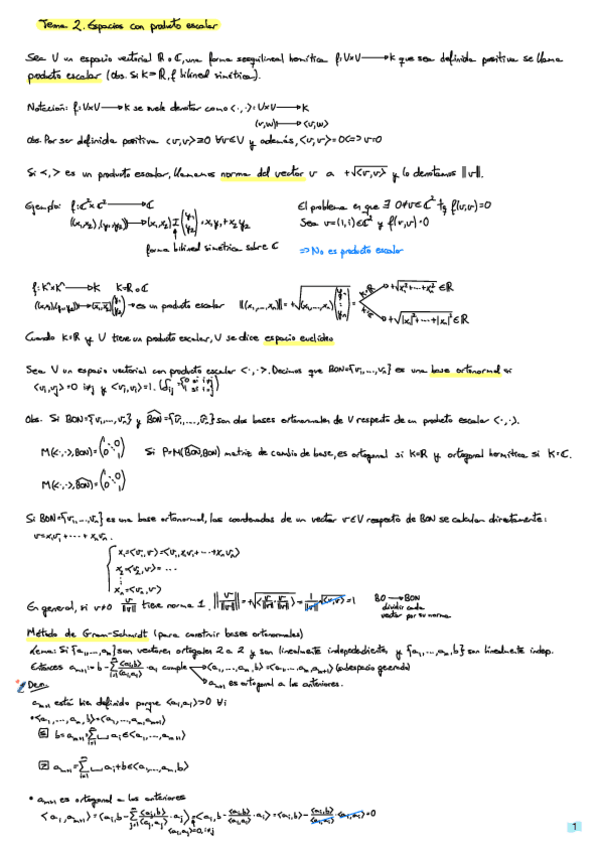 Tema 2. Espacios con producto escalar
Sea V un espacio vectorial ℝ o ℂ, una forma sesquilineal hermítica f: V×V → K que sea definida positiva se llama
producto escalar (obs. Si K=ℝ, f bilineal simétrica).
Notación: f: V×V → K se suele denotar como <·,·>: V×V → K
(v,w) ↦ <v,w>
Obs. Por ser definida positiva <v,v> ≥ 0 ∀v∈V y además, <v,v>=0 <=> v=0
Si <,> es un producto escalar, llamamos norma del vector v a +√<v,v> y lo denotamos ||v||.
Ejemplo: f: ℂ²×ℂ² → ℂ El problema es que ∃ 0≠v∈ℂ² tq f(v,v)=0
((x₁,x₂),(y₁,y₂)) → (x₁,x₂) I (y₁ y₂) = x₁y₁+x₂y₂ Sea v=(1,i)∈ℂ² y f(v,v)=0
forma bilineal simétrica sobre ℂ => No es producto escalar
f: Kⁿ×Kⁿ → K K=ℝ o ℂ
→ es un producto escalar ||(x₁,...,xₙ)|| = K=ℝ +√x₁²+···+xₙ² ∈ℝ
+√|x₁|²+···+|xₙ|² ∈ℝ
Cuando K=ℝ y V tiene un producto escalar, V se dice espacio euclídeo
Sea V un espacio vectorial con producto escalar <·,·>. Decimos que BON={v₁,...,vₙ} es una base ortonormal si
<vᵢ,vⱼ>=0 i≠j y <vᵢ,vᵢ>=1. (δᵢⱼ = {0 si i≠j 1 si i=j})
Obs. Si BON={v₁,...,vₙ} y B̂ON={v̂₁,...,v̂ₙ} son dos bases ortonormales de V respecto de un producto escalar <·,·>.
M(<·,·>,BON)=(1 ··. 0 0 1) Si P=M(B̂ON,BON) matriz de cambio de base, es ortogonal si K=ℝ y ortogonal hermítica si K=ℂ.
M(<·,·>,B̂ON)=(1 ··. 0 0 1)
Si BON={v₁,...,vₙ} es una base ortonormal, las coordenadas de un vector v∈V respecto de BON se calculan directamente:
v=x₁v₁+···+xₙvₙ.
x₁=<v₁,v>=<v₁,x₁v₁+···+xₙvₙ>
x₂=<v₂,v>=···
⋮
xₙ=<vₙ,v>
En general, si v≠0 v/||v|| tiene norma 1. ||v/||v|||| = +√<v/||v||, v/||v||> = 1/||v|| √<v,v> = 1 BO → BON
dividir cada
vector por su norma
Método de Gram-Schmidt (para construir bases ortonormales)
Lema: Si {a₁,...,aₘ} son vectores ortogales 2 a 2 y son linealmente independientes y {a₁,...,aₘ,b} son linealmente indep.
Entonces aₘ₊₁ = b - Σᵢ₌₁ᵐ <aᵢ,b>/<aᵢ,aᵢ> · aᵢ cumple <a₁,...,aₘ,b>=<a₁,...,aₘ,aₘ₊₁> (subespacio generado)
aₘ₊₁ es ortogonal a los anteriores.
Dem.
aₘ₊₁ está bien definido porque <aᵢ,aᵢ> > 0 ∀i
• <a₁,...,aₘ,b>=<a₁,...,aₘ,aₘ₊₁>
⊆ b=aₘ₊₁+Σᵢ₌₁ᵐ ⎵ aᵢ∈<a₁,...,aₘ₊₁>
⊇ aₘ₊₁=Σᵢ₌₁ᵐ ⎵ aᵢ+b∈<a₁,...,aₘ,b>
• aₘ₊₁ es ortogonal a los anteriores
<aᵢ,aₘ₊₁>=<aᵢ,b-Σⱼ₌₁ᵐ <aⱼ,b>/<aⱼ,aⱼ> · aⱼ>=<aᵢ,b-<aᵢ,b>/<aᵢ,aᵢ> · aᵢ>=<aᵢ,b>-<aᵢ,b>/<aᵢ,aᵢ> · <aᵢ,aᵢ>=0
<aᵢ,aⱼ>=0, i≠j
1